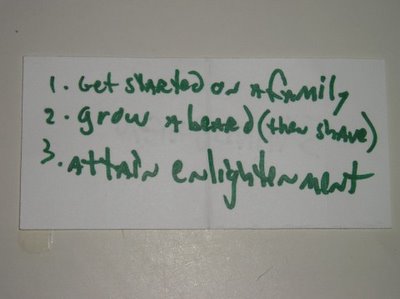 1. Get started on a family
2. grow a beard (then shave)
3. attain enlightenment